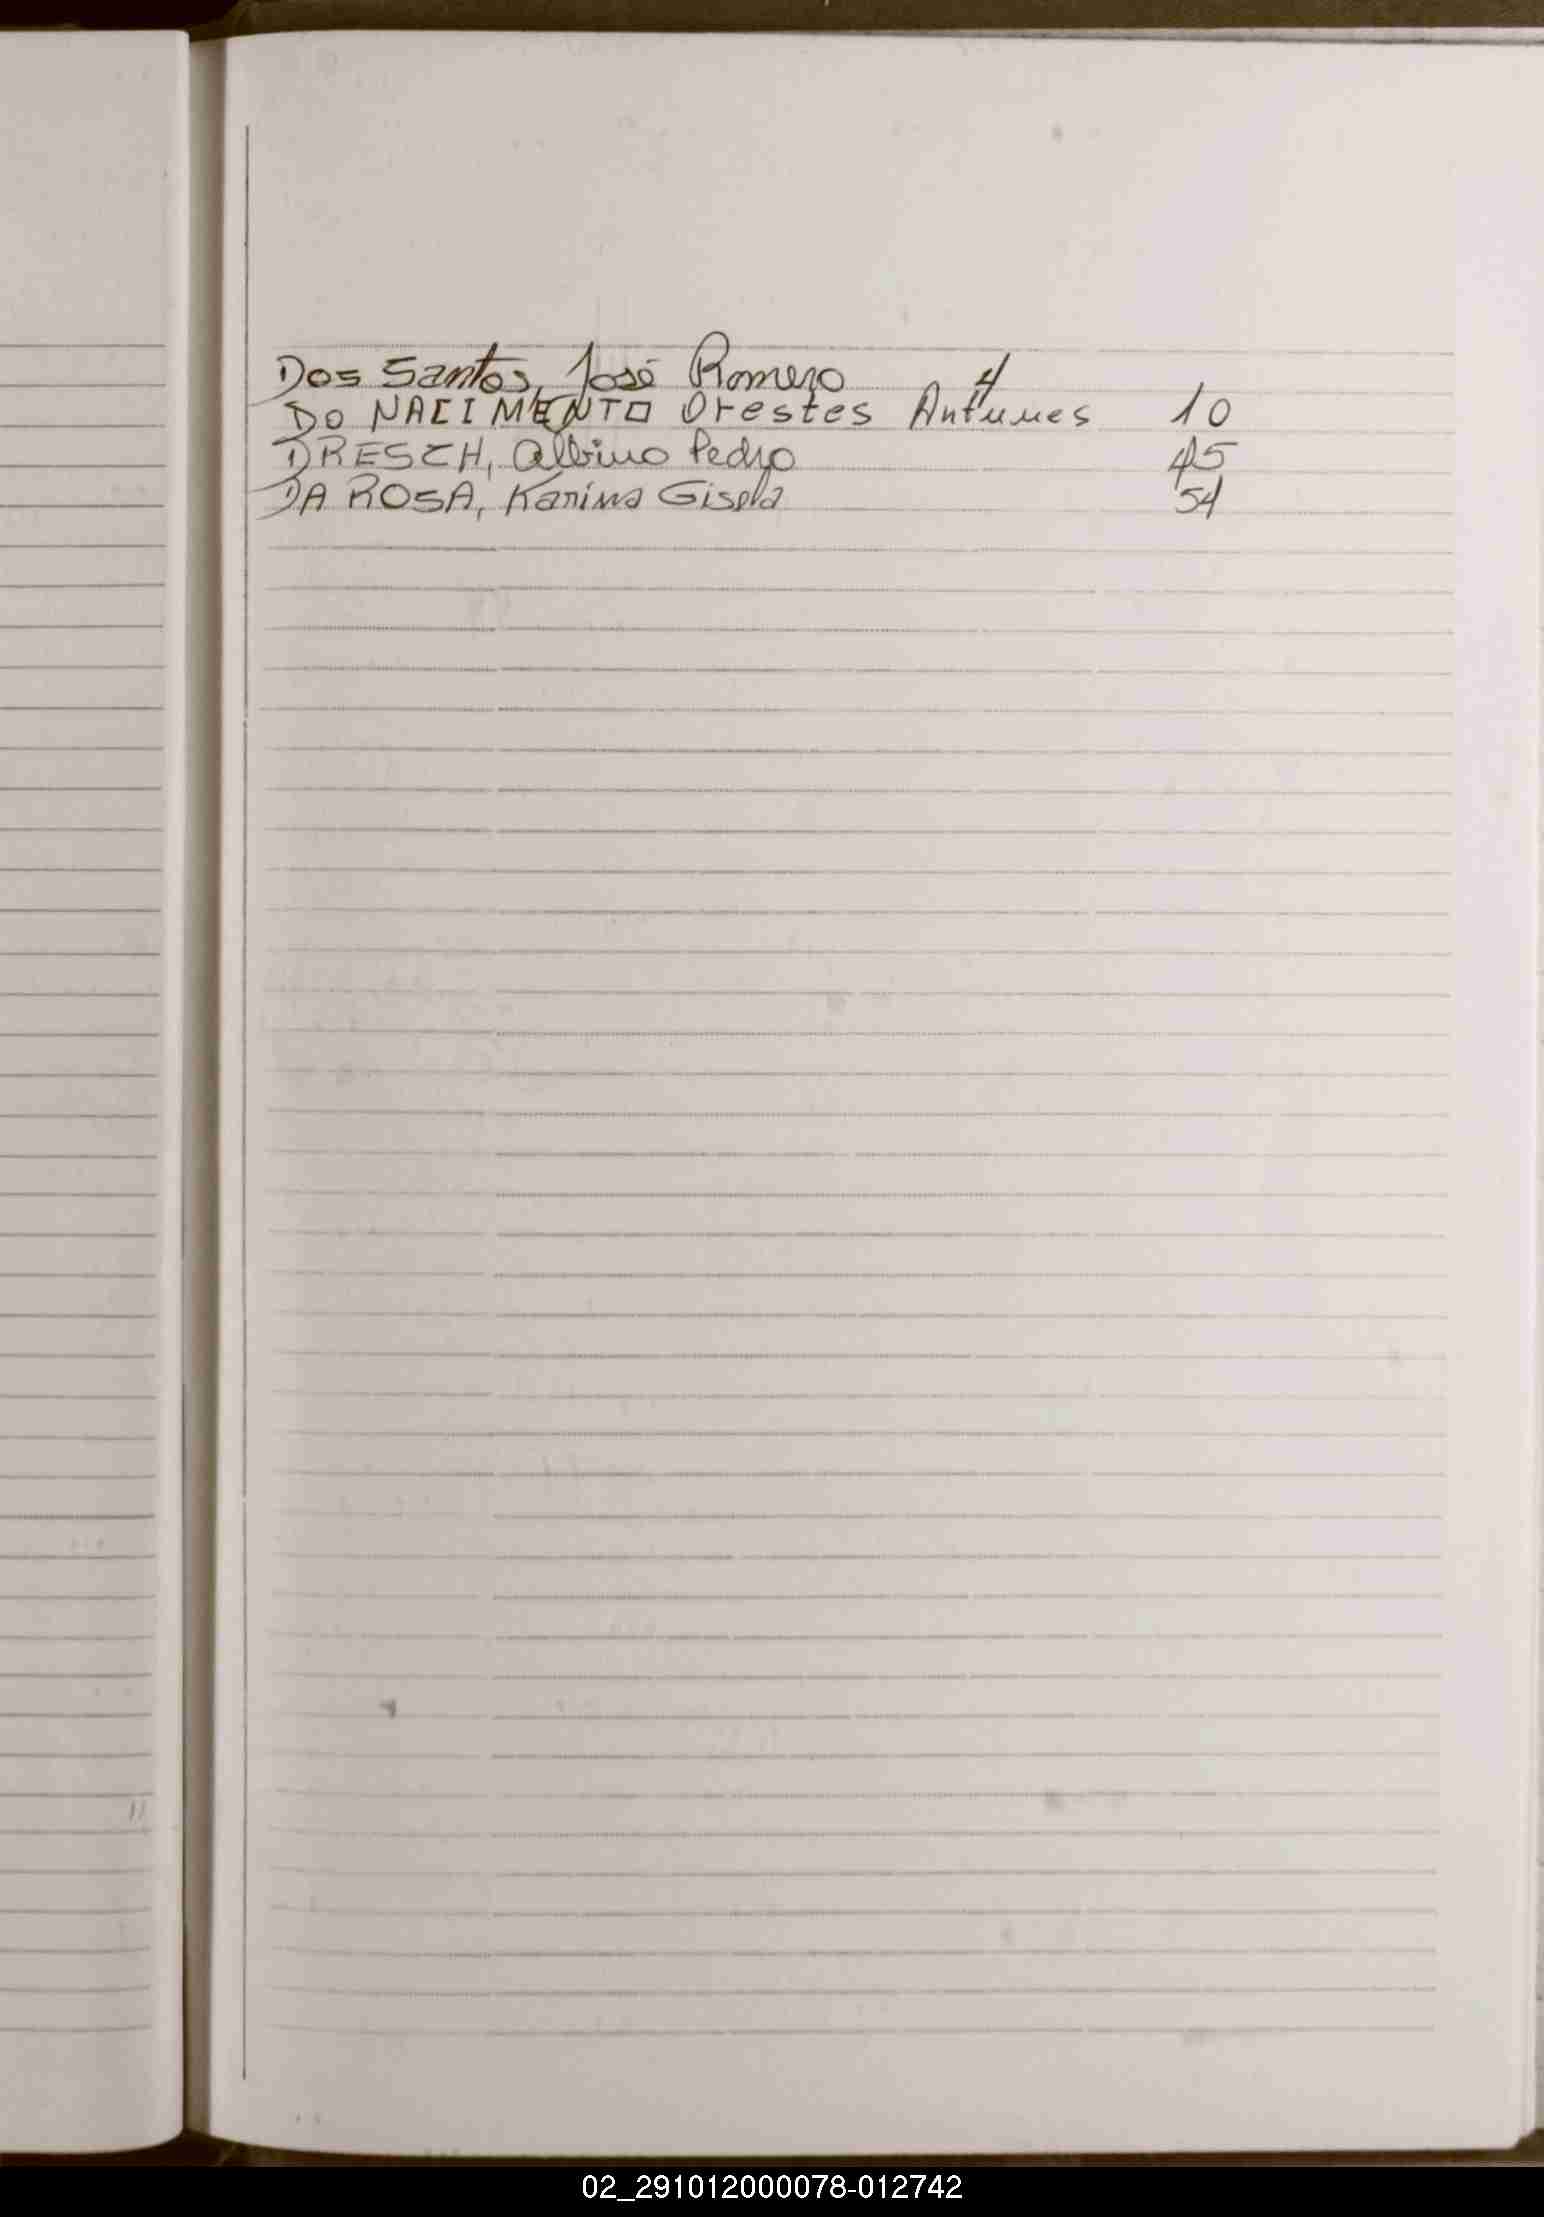 Dos Santos, José Romero 4
DO NACIMENTO Orestes Antunes 10
DRESCH, Albino Pedro 45
DA ROSA, Karina Gisela 54
02_291012000078-012742